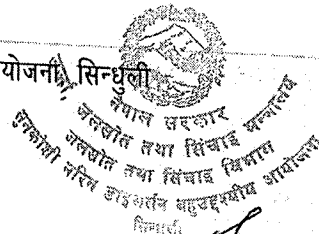 योजना, सिन्धुली
नेपाल सरकार
जलस्रोत तथा सिंचाइ मन्त्रालय
जलस्रोत तथा सिंचाइ विभाग
सुनकोशी मरिन डाइभर्सन बहुउद्देश्यीय आयोजना
सिन्धुली